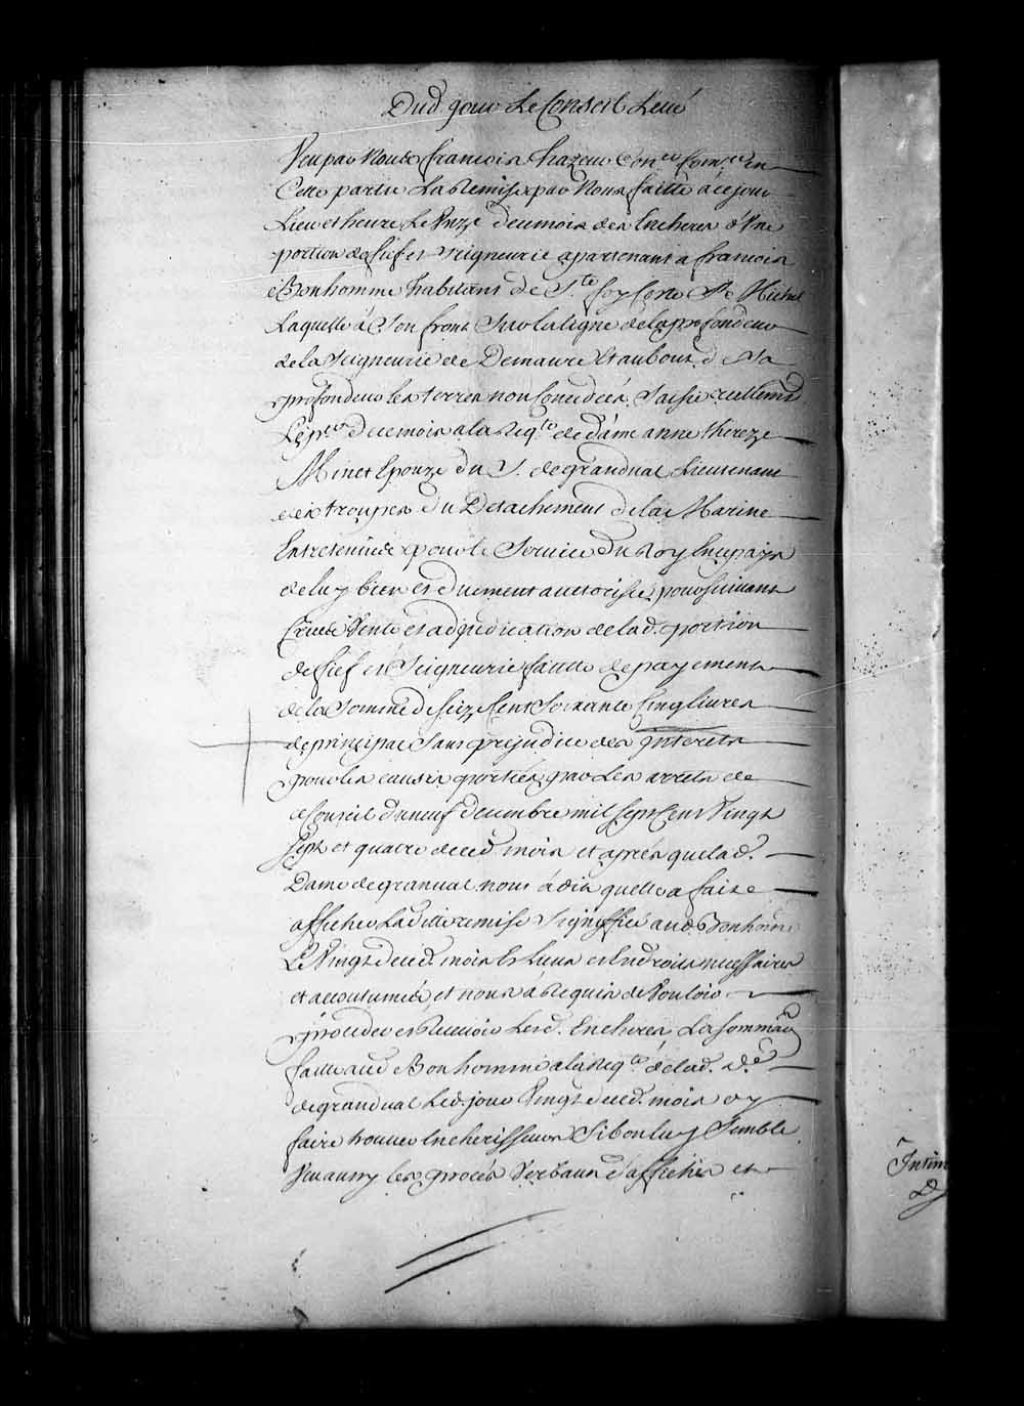 Dud jour Le Conseil Levé
Veu par Nous françois hazeur Con.er Com.re en
Cette partie La Remise par Nous faitte à ce jour
Lieu et heure Le Onze de ce mois des Encheres d'Une
portion de fief et seigneurie apartenant a françois
Bonhomme habitant de S.te foy Coste S.t Michel
Laquelle à Son front Sur la ligne de la profondeur
de la Seigneurie de Demaure Et au bout d sa
profondeur les terres non Concedées, Saisie reellement
Le p.er de ce mois a la Req.te de dame anne thereze
Minet Epouze du S. de grandual Lieutenant
des trouppes du Detachement de la Marine
Entretenues pour le Service du Roy En ce pays
de luy bien et duement auctorisée, poursuivant
Criée Vente et adjudication de la d. portion
de fief et Seigneurie faute de payement
de la Somme de Seize Cent Soixante Cinq livres
de principal Sans prejudice des Interets
pour les causes portées par Les arrets de
Conseil du neuf decembre mil Sept Cent Vingt
Sept et quatre de ced. mois et aprés que lad.
Dame de granual nous à dis quelle a fait
afficher Laditte remise Signiffiée aud Bonhome
Le Vingt de ced. mois Es Lieux et Endroits necessaires
et accoutumés et nous à Requis de Vouloir
proceder et Recevoir Lesd. Encheres, La sommaõn
faitte aud Bonhomme a la Req.te de lad. D.e
de grandual Led. jour Vingt de ced. mois oy
faire trouver Encherisseurs Si bon luy Semble
Veu aussy les procés Verbaux d'affiches et
Intim